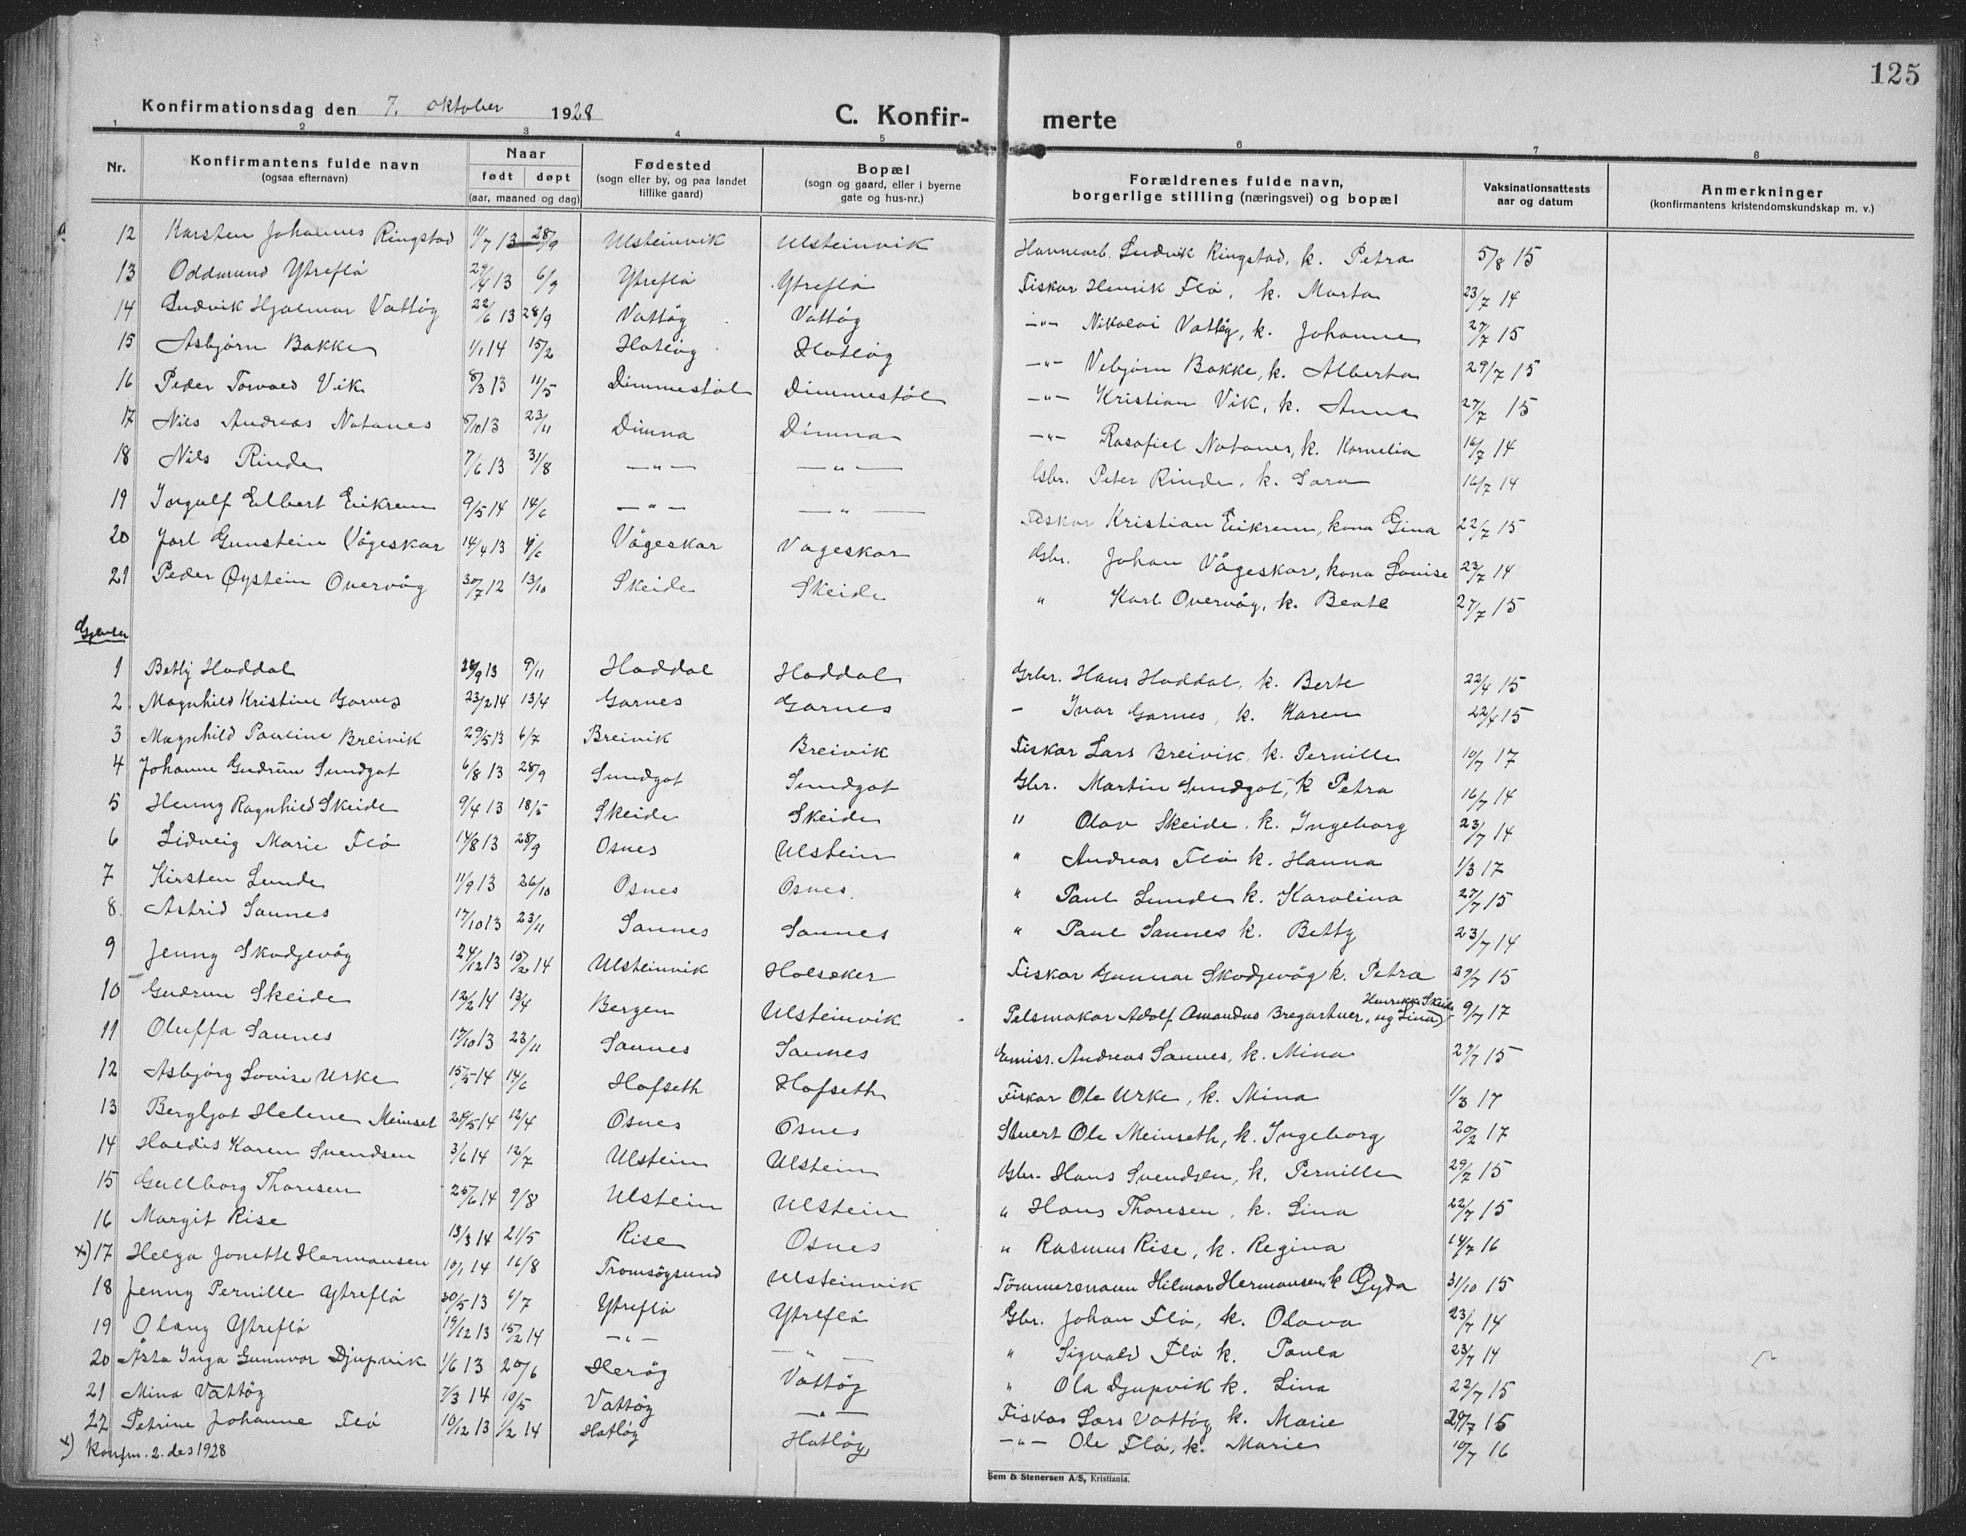 125
Konfirmationsdag den 7. oktober 1928 C. Konfirmerte
1 2 3 4 5 6 7 8
Nr. Konfirmantens fulde navn (ogsaa efternavn) Naar født døpt (aar, maaned og dag) Fødested (sogn eller by, og paa landet tillike gaard) Bopæl (sogn og gaard, eller i byerne gate og hus-nr.) Forældrenes fulde navn, borgerlige stilling (næringsvei) og bopæl Vaksinationsattests aar og datum Anmerkninger (konfirmantens kristendomskundskap m. v.)
12 Karsten Johannes Ringstad 11/7 13 28/9 Ulsteinvik Ulsteinvik Havnearb. Ludvik Ringstad, k. Petra 5/8 15
13 Oddmund Ytreflø 29/4 13 6/9 Ytreflø Ytreflø Fiskar Henrik Flø, k. Marta 23/7 14
14 Ludvik Hjalmar Vattøy 22/6 13 28/9 Vattøy Vattøy -"- Nikolai Vattøy, k. Johanne 27/7 15
15 Asbjørn Bakke 1/1 14 15/2 Hatløy Hatløy -"- Vebjørn Bakke, k. Alberta 29/7 15
16 Peder Torvald Vik 8/3 13 11/5 Dimmestøl Dimmestøl -"- Kristian Vik, k. Anna 27/7 15
17 Nils Andreas Notanes 8/10 13 23/11 Dimna Dimna -"- Rasafiel Notanes, k. Kornelia 16/7 14
18 Nils Rinde 7/6 13 31/8 -"- -"- Gbr. Peter Rinde, k. Sara 16/7 14
19 Ingolf Elbert Eikrem 9/5 14 14/6 -"- -"- Fiskar Kristian Eikrem, kona Gina 22/7 15
20 Jarl Gunstein Vågeskar 14/4 13 1/6 Vågeskar Vågeskar Gbr. Johan Vågeskar, kona Lovise 23/7 14
21 Peder Øystein Overvåg 30/7 12 13/10 Skeide Skeide " Karl Overvåg, k. Beate 27/7 15
Gjenter
1 Betty Haddal 28/9 13 9/11 Haddal Haddal Gbr. Hans Haddal, k. Berte 22/4 15
2 Magnhild Kristine Garnes 23/2 14 13/4 Garnes Garnes - Ivar Garnes, k. Karen 22/6 15
3 Magnhild Pauline Breivik 29/5 13 6/7 Breivik Breivik Fiskar Lars Breivik, k. Pernille 10/7 17
4 Johanne Gudrun Sundgot 6/8 13 28/9 Sundgot Sundgot Gbr. Martin Sundgot, k Petra 16/7 14
5 Henny Ragnhild Skeide 9/4 13 18/5 Skeide Skeide " Olav Skeide, k. Ingeborg 23/7 14
6 Lidveig Marie Flø 14/8 13 28/9 Osnes Ulstein " Andreas Flø k. Hanna 1/3 17
7 Kirsten Lunde 11/9 13 26/10 Osnes Osnes " Paul Lunde k. Karolina 27/7 15
8 Astrid Saunes 17/10 13 23/11 Saunes Saunes " Paul Saunes k. Betty 23/7 14
9 Jenny Skodjevåg 24/12 13 15/2 14 Ulsteinvik Holseker Fiskar Gunnar Skodjevåg k. Petra 29/7 15
10 Gudrun Skeide 12/2 14 13/4 Bergen Ulsteinvik Pelsmakar Adolf Amandus Bregartner, og Lina Henrikke Skeide 9/7 17
11 Oluffa Saunes 17/10 13 23/11 Saunes Saunes Emiss. Andreas Saunes, k. Mina 27/7 15
12 Asbjørg Lovise Urke 15/5 14 14/6 Hofseth Hofseth Fiskar Ole Urke, k. Mina 1/3 17
13 Bergljot Helene Meinset 28/5 14 12/4 Osnes Osnes Stuert Ole Meinseth, k. Ingeborg 20/2 17
14 Haldis Karen Svendsen 3/6 14 12/7 Ulstein Ulstein Gbr. Hans Svendsen, k. Pernille 29/7 15
15 Gullborg Thoresen 25/6 14 9/8 Ulstein Ulstein " Hans Thoresen, k. Lina 22/7 15
16 Margit Rise 13/3 14 21/5 Rise Osnes " Rasmus Rise, k. Regina 14/7 16
x) 17 Helga Jonette Hermansen 10/1 14 16/8 Tromsøysund Ulsteinvik Tømmermann Hilmar Hermansen, k Gyda 31/10 15
18 Jenny Pernille Ytreflø 30/5 13 6/7 Ytreflø Ytreflø Gbr. Johan Flø, k. Olava 23/7 14
19 Olaug Ytreflø 19/12 13 15/2 14 -"- -"- " Sigvald Flø k. Paula 23/7 14
20 Åsta Inga Gunnvor Djupvik 1/6 13 20/6 Herøy Vattøy " Ola Djupvik k. Lina 22/7 15
21 Mina Vattøy 7/3 14 10/5 Vattøy -"- Fiskar Lars Vattøy k. Marie 29/7 15
22 Petrine Johanne Flø 10/12 13 1/2 14 Hatløy Hatløy -"- Ole Flø, k. Marie 10/7 16
x) Konfm. 2. des 1928
Sem & Stenersen A/S, Kristiania.